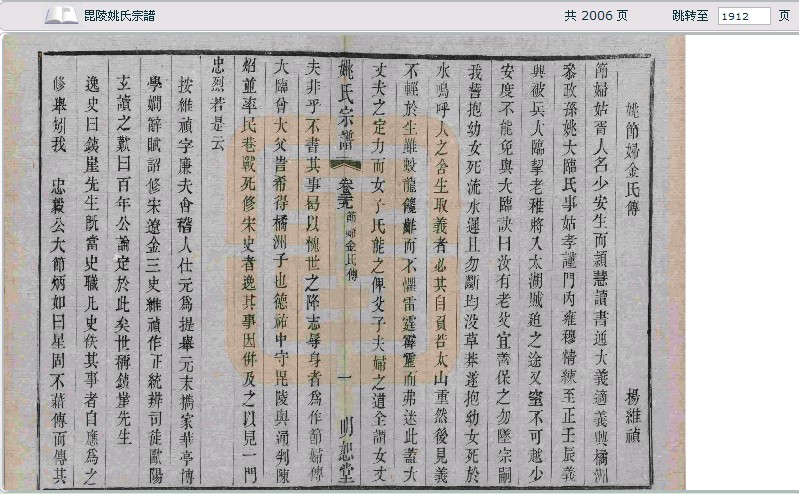 毘陵姚氏宗譜
共 2006 页
跳转至 1912 页
姚節婦金氏傳
楊維禎
節婦姑胥人名少安生而頴慧讀書通大義適義興橘洲
叅政孫姚大臨氏事姑孝謹門內雍穆精練至正壬辰義
興被兵大臨挈老稚將入太湖賊追之途叉窒不可越少
安度不能免與大臨訣曰汝有老父宜善保之勿墜宗嗣
我誓抱幼女死流水遲且勿斷均没草莽遂抱幼女死於
水嗚呼人之舍生取義者必其自頁若太山重然後見義
不輕於生雖蛟龍饞齶而不懼雷霆霹靂而弗迷此蓋大
丈夫之定力而女子氏能之俾父子夫婦之道全謂女丈
姚氏宗譜
卷三十九
節婦金氏傳
一
明恕堂
夫非乎不書其事曷以愧世之降志辱身者爲作節婦傳
大臨曾大父訔希得橘洲子也德祐中守毘陵與通判陳
炤並率民巷戰死修宋史者逸其事因併及之以見一門
忠烈若是云
按維禎字廉夫會稽人仕元爲提舉元末擕家華亭博
學嫻辭賦詔修宋遼金三史維禎作正統辨司徒歐陽
玄讀之歎曰百年公論定於此矣世稱鐵崖先生
逸史曰鐵崖先生旣當史職凡史佚其事者自應爲之
修舉矧我 忠毅公大節炳如日星固不藉傳而傳其